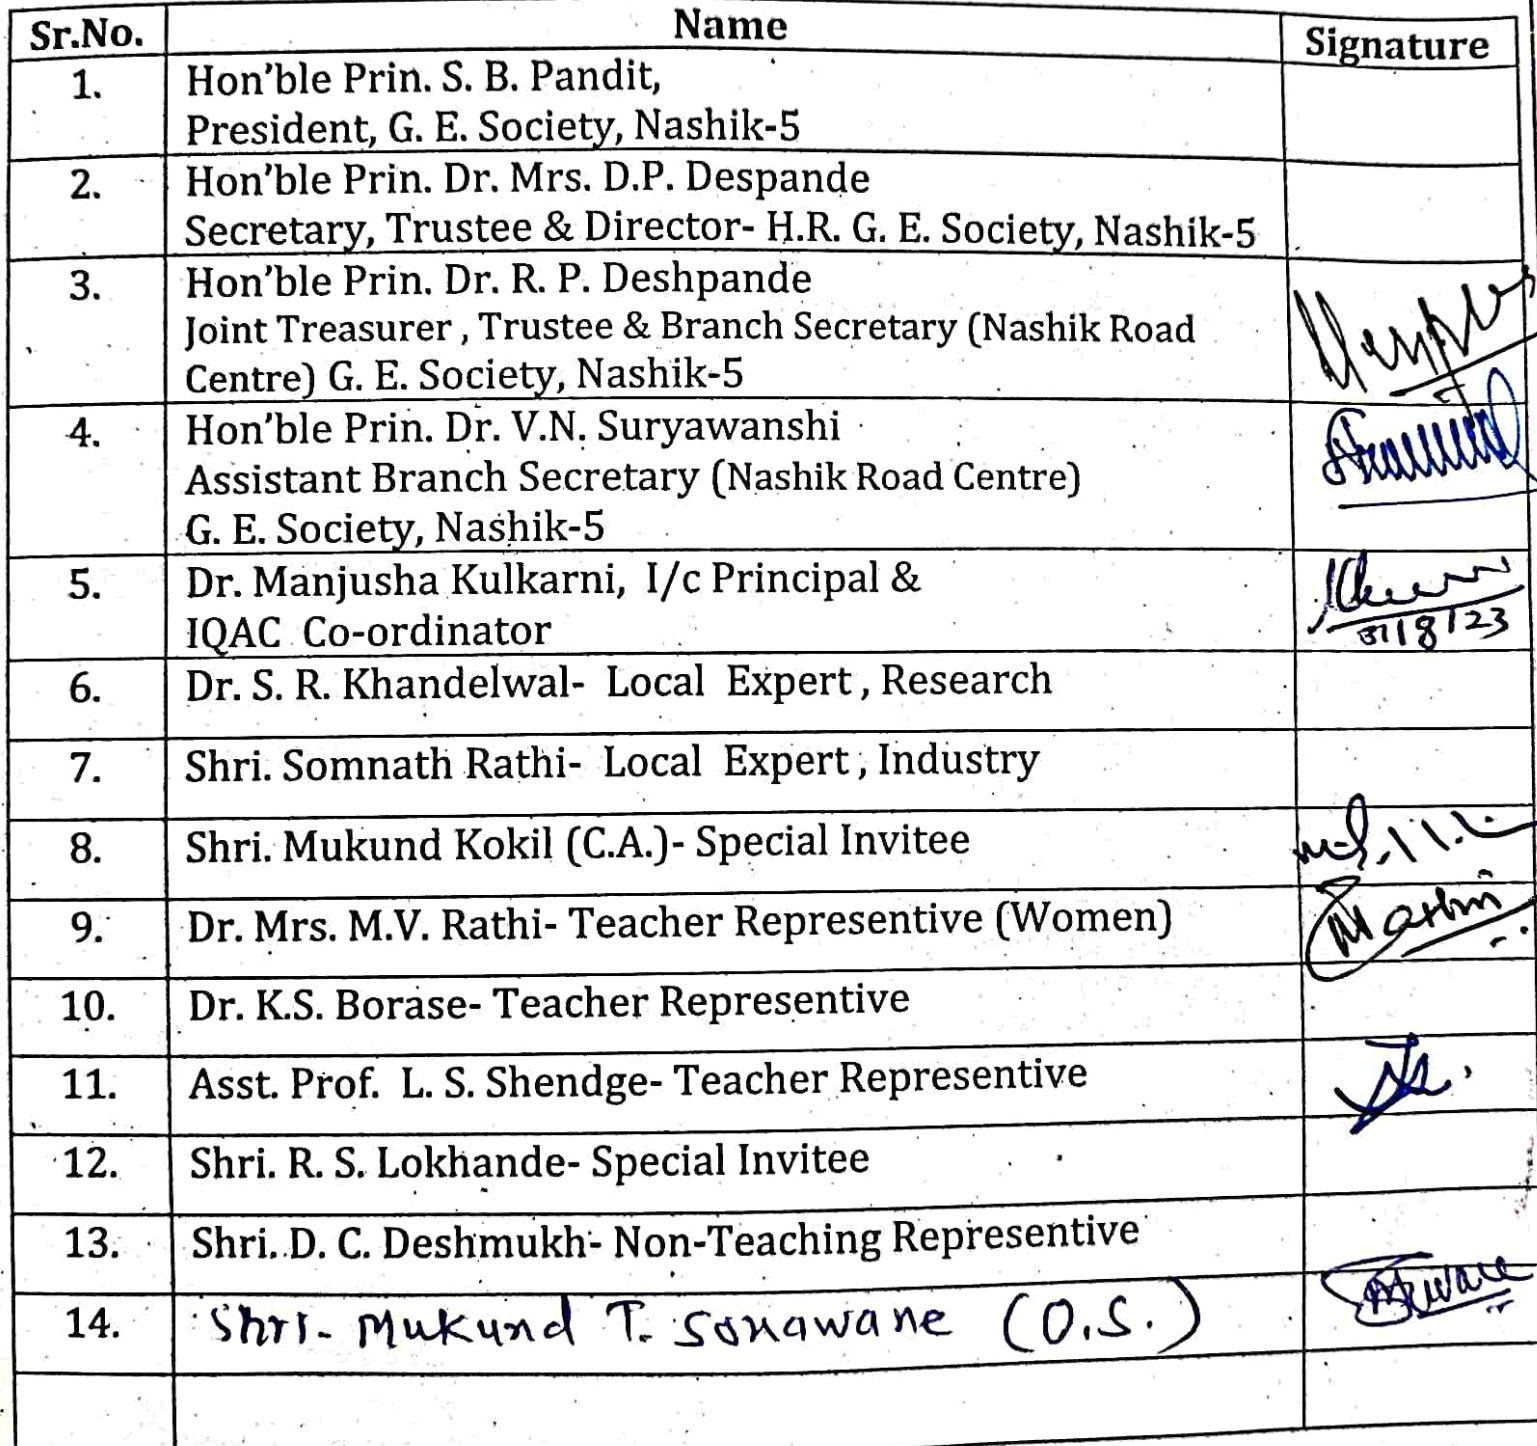 Sr.No. Name Signature
1. Hon'ble Prin. S. B. Pandit,
President, G. E. Society, Nashik-5
2. Hon'ble Prin. Dr. Mrs. D.P. Despande
Secretary, Trustee & Director- H.R. G. E. Society, Nashik-5
3. Hon'ble Prin. Dr. R. P. Deshpande
Joint Treasurer , Trustee & Branch Secretary (Nashik Road
Centre) G. E. Society, Nashik-5
4. Hon'ble Prin. Dr. V.N. Suryawanshi
Assistant Branch Secretary (Nashik Road Centre)
G. E. Society, Nashik-5
5. Dr. Manjusha Kulkarni, I/c Principal &
IQAC Co-ordinator 31/8/23
6. Dr. S. R. Khandelwal- Local Expert , Research
7. Shri. Somnath Rathi- Local Expert , Industry
8. Shri. Mukund Kokil (C.A.)- Special Invitee
9. Dr. Mrs. M.V. Rathi- Teacher Representive (Women)
10. Dr. K.S. Borase- Teacher Representive
11. Asst. Prof. L. S. Shendge- Teacher Representive
12. Shri. R. S. Lokhande- Special Invitee
13. Shri. D. C. Deshmukh- Non-Teaching Representive
14. Shri- Mukund T. Sonawane (O.S.)